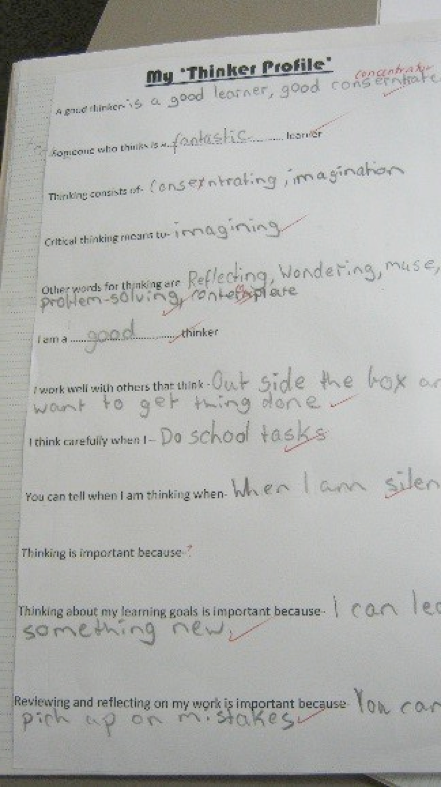 My 'Thinker Profile'
concentrator
A good thinker- is a good learner, good consentrate
Someone who thinks is a fantastic learner
Thinking consists of- Consexntrating, imagination
Critical thinking means to- imagining
Other words for thinking are Reflecting, Wondering, muse,
problem-solving, contemplate
I am a ...... good ...... thinker
I work well with others that think - Out side the box
want to get thing done
I think carefully when I - Do school tasks
You can tell when I am thinking when- When I am
Thinking is important because- ?
Thinking about my learning goals is important because- I can
something new
Reviewing and reflecting on my work is important because- You can
pick up on mistakes